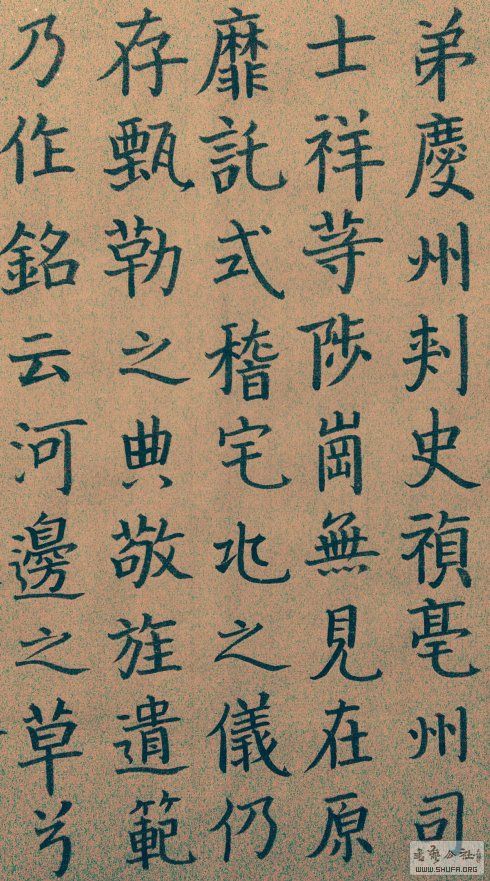 弟慶州刺史禎亳州司
士祥等陟崗無見在原
靡託式稽宅兆之儀仍
存甄勒之典敬旌遺範
乃作銘云河邊之草兮
WWW.SHUFA.ORG